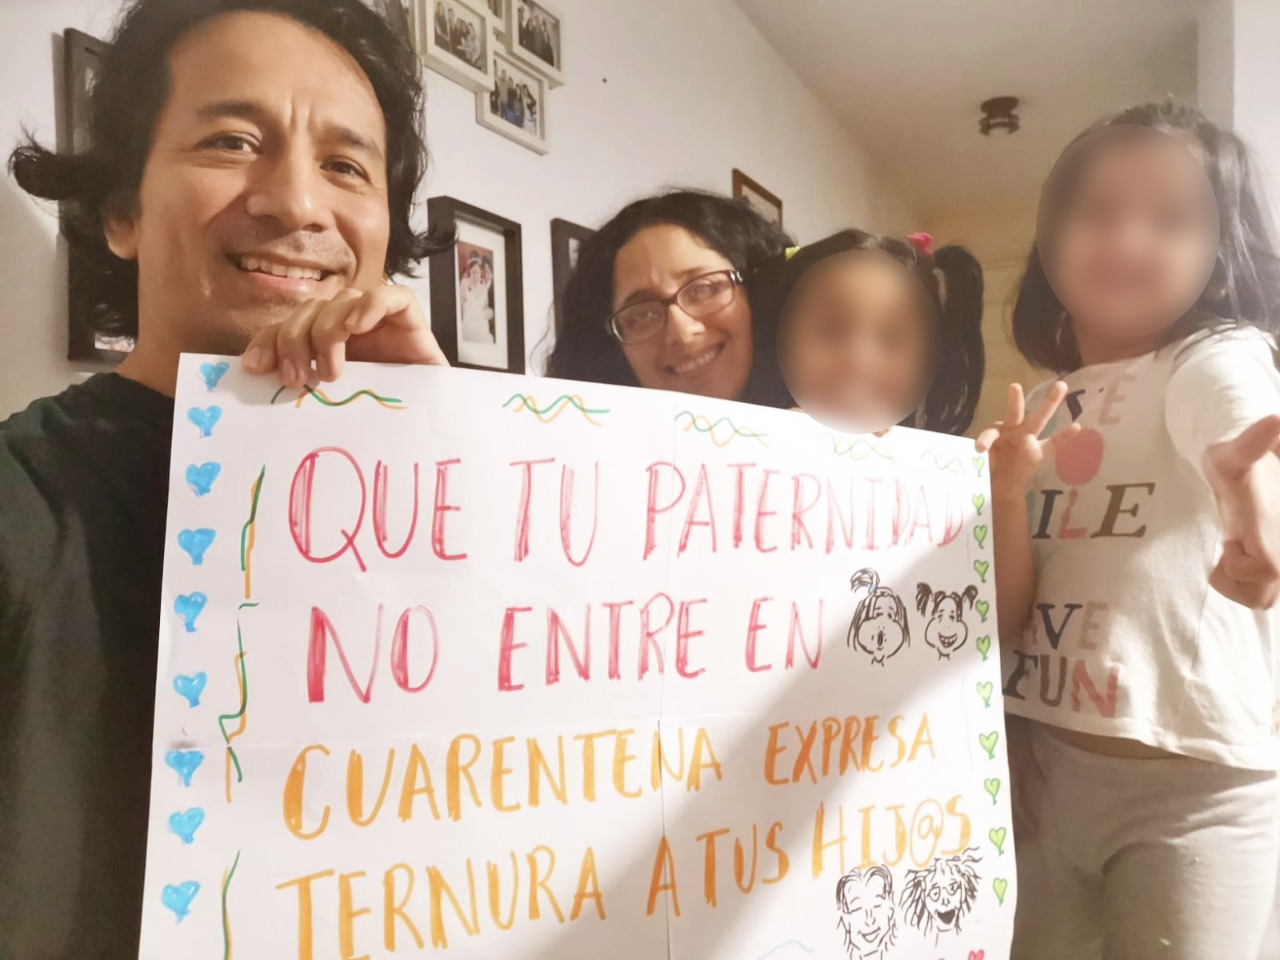 QUE TU PATERNIDAD
NO ENTRE EN
CUARENTENA EXPRESA
TERNURA A TUS HIJ@S
ILE
FUN